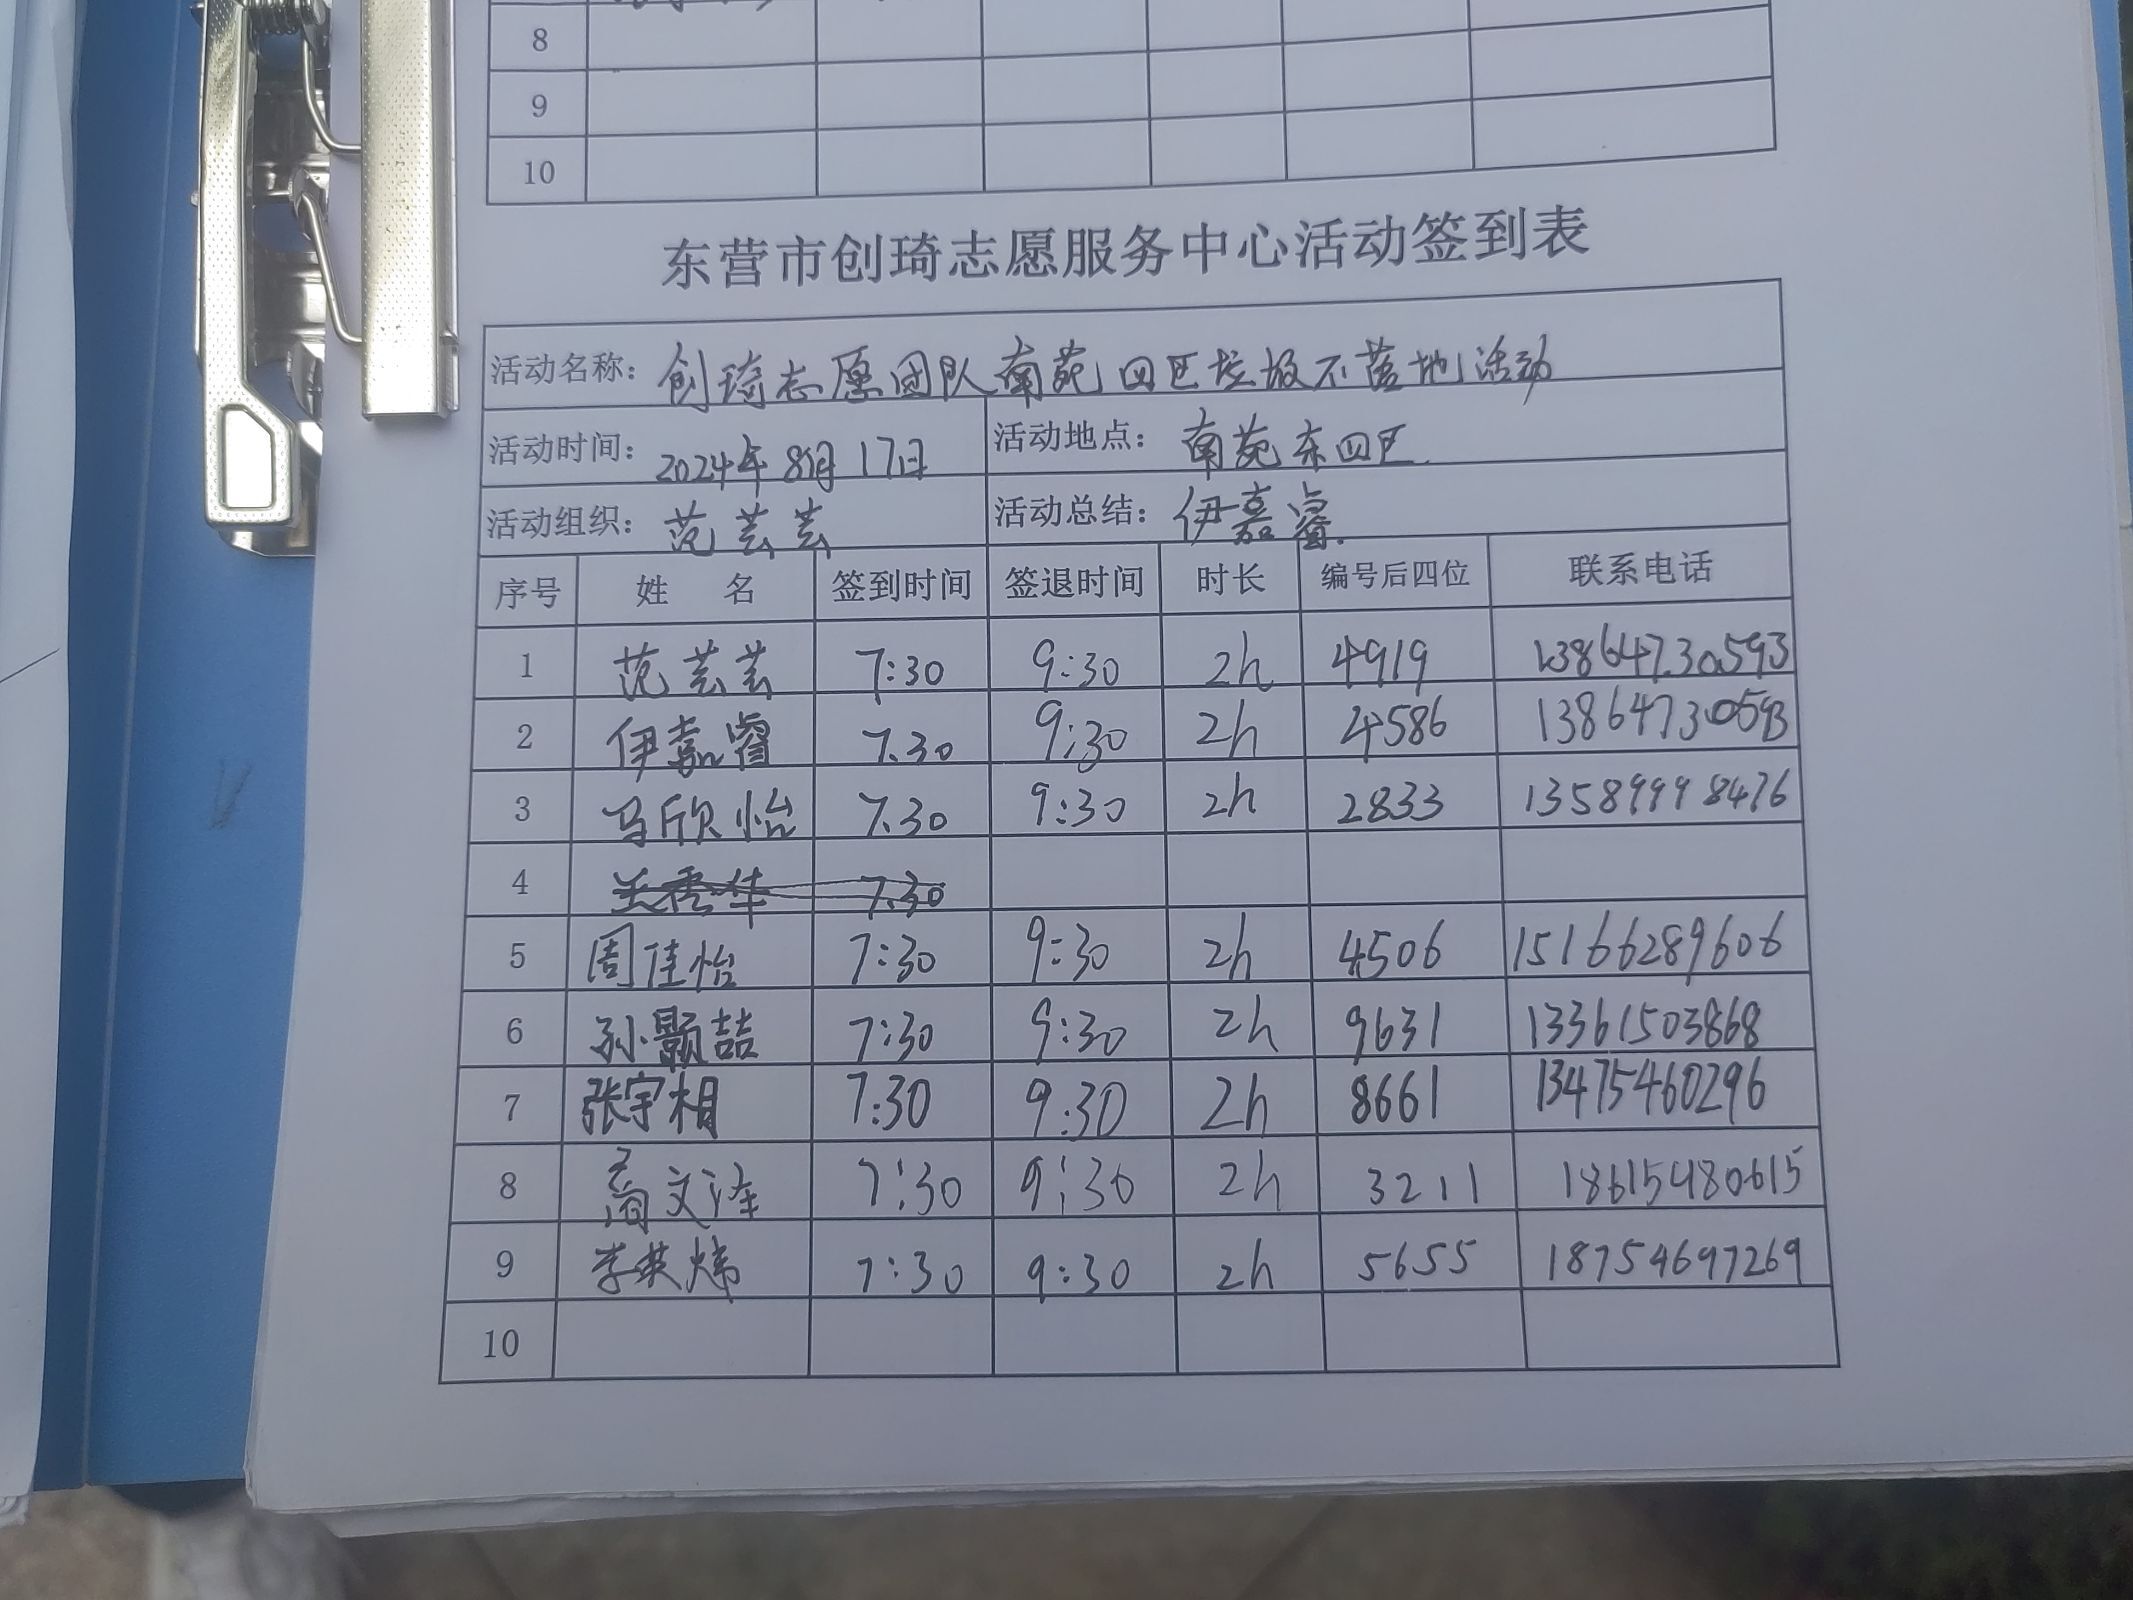 8
9
10
东营市创琦志愿服务中心活动签到表
活动名称：创琦志愿团队南苑四区垃圾不落地活动
活动时间：2024年8月17日 活动地点：南苑东四区
活动组织：范芸芸 活动总结：伊嘉睿
序号 姓名 签到时间 签退时间 时长 编号后四位 联系电话
1 范芸芸 7:30 9:30 2h 4919 13864730593
2 伊嘉睿 7.30 9:30 2h 4586 13864730593
3 马欣怡 7.30 9:30 2h 2833 13589998476
4 7.30
5 周佳怡 7:30 9:30 2h 4506 15166289606
6 孙颢喆 7:30 9:30 2h 9631 13361503868
7 张宇相 7:30 9:30 2h 8661 13475460296
8 高文泽 7:30 9:30 2h 3211 18615480615
9 李英炜 7:30 9:30 2h 5655 18754697269
10